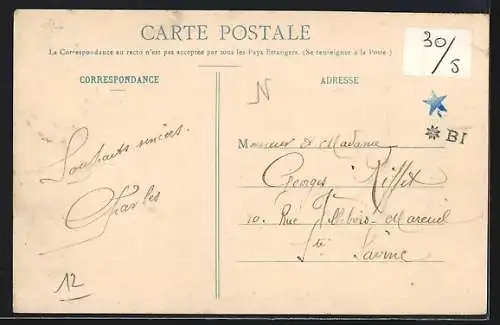 CARTE POSTALE
La Correspondance au recto n'est pas acceptée par tous les Pays Etrangers. (Se renseigner à la Poste.)
30/5
CORRESPONDANCE
ADRESSE
N
BI
Souhaits sincères.
Charles
12
Monsieur & Madame
Georges
10. Rue Villebois-Mareuil
Ste Savine